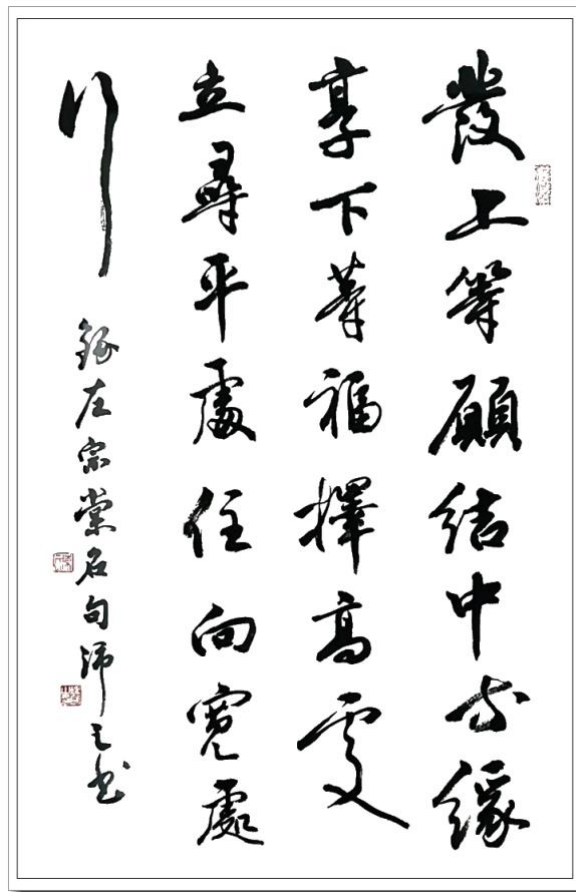 發上等願結中等緣
享下等福擇高處
立尋平處住向寬處
行
錄左宗棠名句沛之書